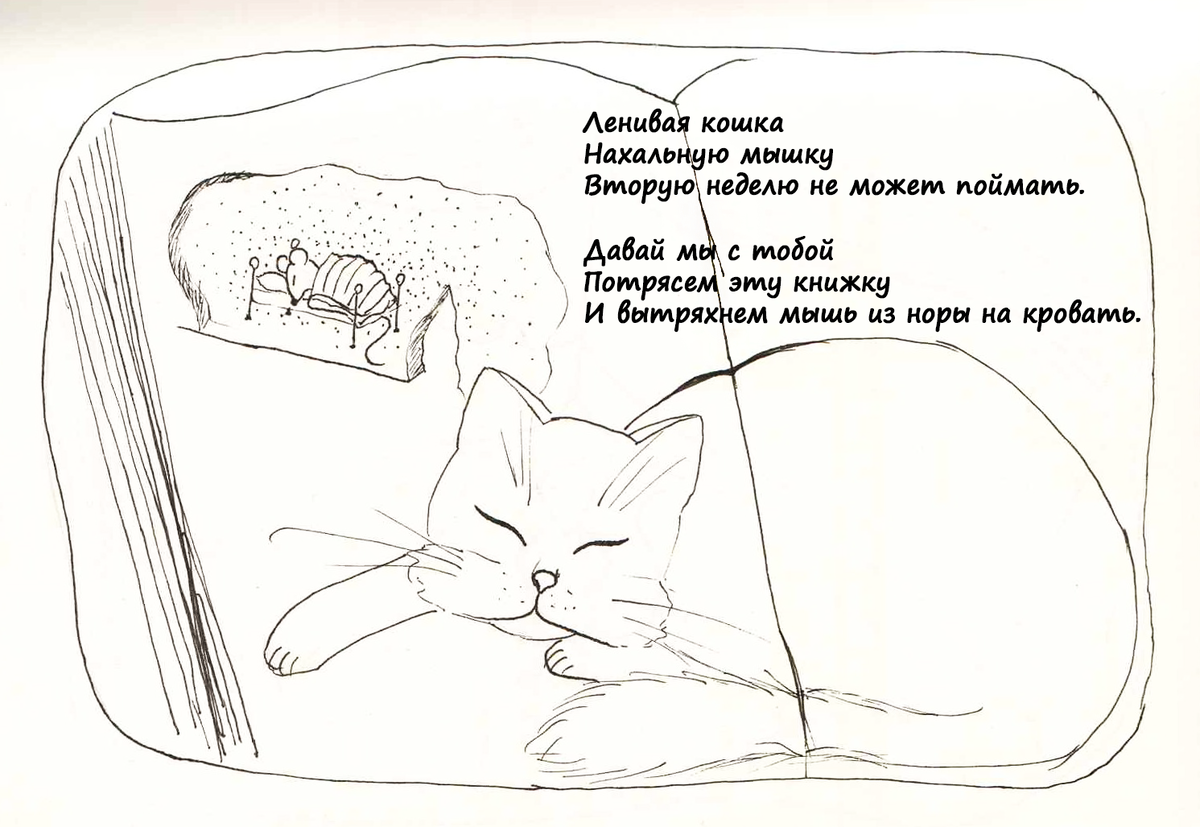 Ленивая кошка
Нахальную мышку
Вторую неделю не может поймать.
Давай мы с тобой
Потрясем эту книжку
И вытряхнем мышь из норы на кровать.